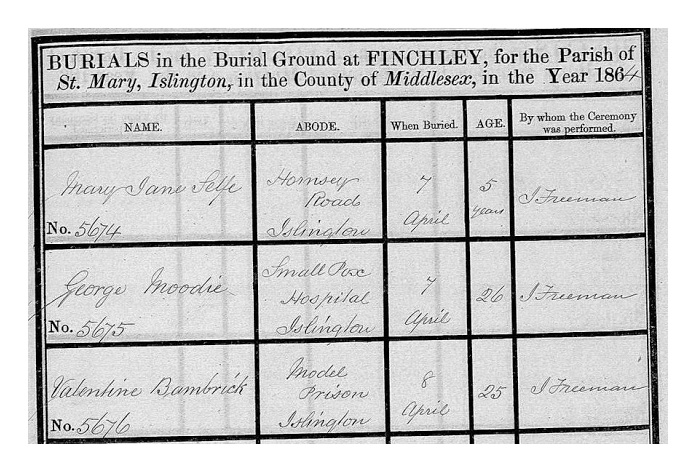 BURIALS in the Burial Ground at FINCHLEY, for the Parish of
St. Mary, Islington, in the County of Middlesex, in the Year 1864
NAME. ABODE. When Buried. AGE. By whom the Ceremony was performed.
Mary Jane Selfe
No. 5674
Hornsey
Road
Islington
7
April
5
years
J Freeman
George Moodie
No. 5675
Small Pox
Hospital
Islington
7
April
26
J Freeman
Valentine Bambrick
No. 5676
Model
Prison
Islington
8
April
25
J Freeman